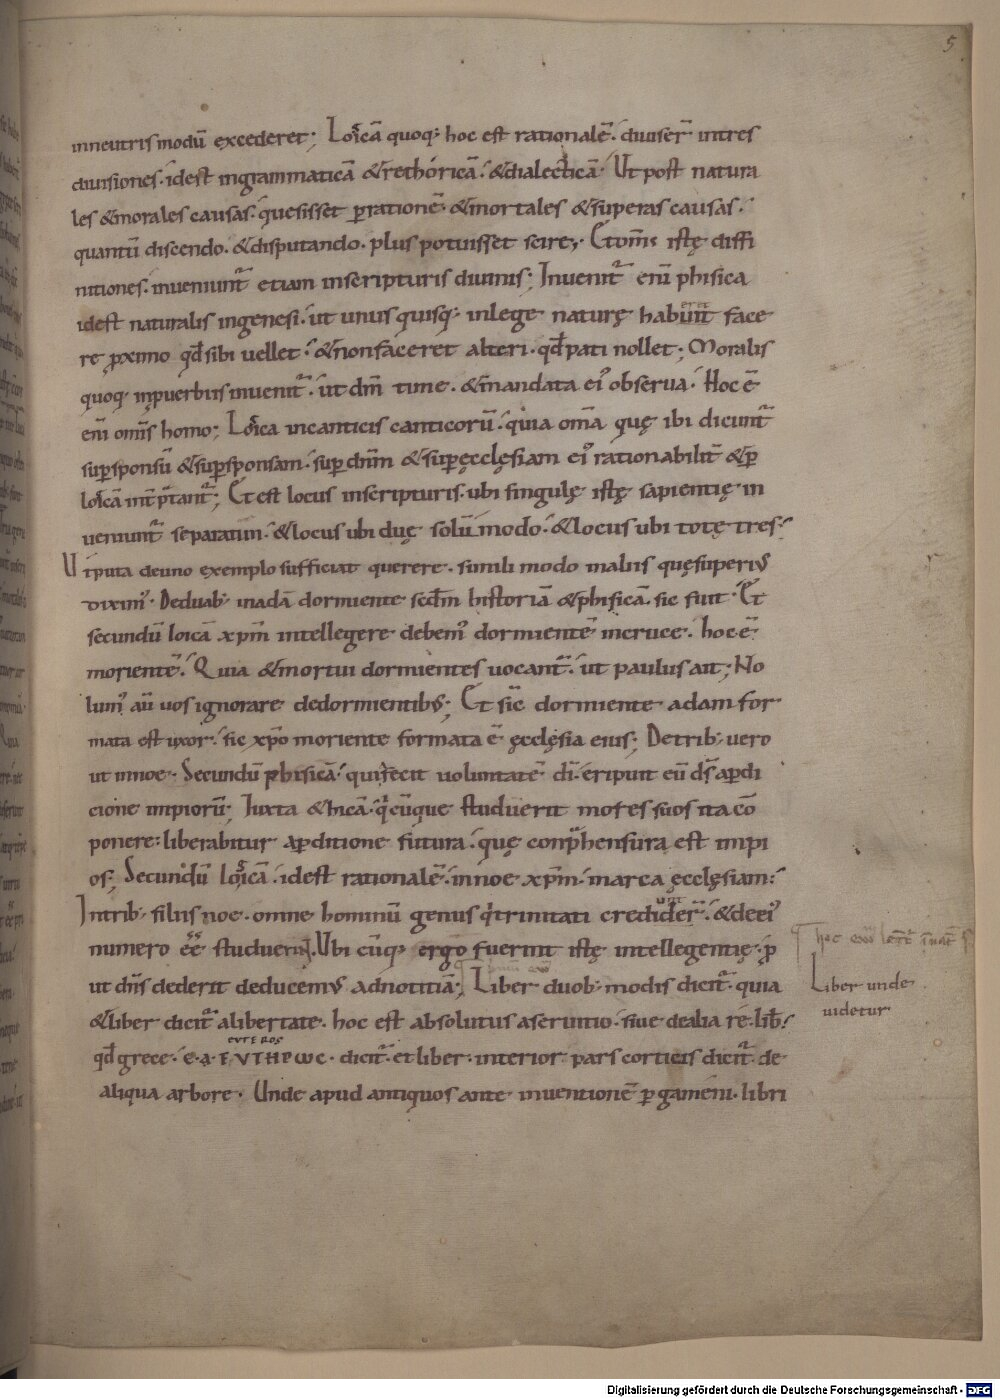 5
inneutris modū excederet; Loicā quoq; hoc est rationalē. diuiser̄ intres
diuisiones. idest ingrammaticā &rethoricā. &dialecticā. Ut post natura
les &morales causas. quesisset ꝑrationē. &mortales &superas causas.
quantū discendo. &disputando. plus potuisset scire; Et om̄s istę diffi
nitiones. inueniunt̄ etiam inscripturis diuinis; Inuenit̄ eni phisica
idest naturalis ingenesi. ut unus quisq; inlege naturę habunt face
re ꝓximo qđ sibi uellet. &nonfaceret alteri. qđ pati nollet; Moralis
quoq; inꝓuerbiis inuenit̄. ut dm̄ time. &mandata ei' obserua. Hoc ē
eni om̄is homo; Loica incanticis canticorū. quia om̄a quę ibi dicunt̄
suꝑsponsū &suꝑsponsam. suꝑ dnm̄ &suꝑęcclęsiam ei' rationabilit̄ &ꝑ
loicā int̄p̄tant̄; Et est locus inscripturis. ubi singulę istę sapientię in
ueniunt̄ separatim. &locus ubi duę solū modo. &locus ubi totę tres.
Utputa deuno exemplo sufficiat querere. simili modo inaliis quęsuperius
diximus. Deduab; inadā dormiente scđm historiā &phisicā. sic fuit. Et
secundū loicā xp̄m intellegere debem' dormientē incruce. hoc ē
morientē. Quia &mortui dormientes uocant̄. ut paulus ait; No
lum' aū uos ignorare dedormientibus; Et sic̄ dormiente adam for
mata est uxor. sic xp̄o moriente formata ē ęcclęsia eius; Detrib; uero
ut innoe. Secundū phisicā. quifecit uoluntatē di. eripuit eū ds̄ aꝑdi
cione impiorū; Iuxta &hicā. q̄cūque studuerit mores suos ita cō
ponere: liberabitur aꝑditione futura. quę conp̄hensura est impi
os; Secundū loicā. idest rationalē. innoe xp̄m. inarca ęcclęsiam.
Intrib; filiis noe. omne hominū genus q̄trinitati
unt
credider̄. &deei'
numero eē̄ studuerint. Ubi cūq; ergo fuerint istę intellegentię. ꝓ
ut dn̄s dederit deducemus adnotitiā; Liber duob; modis dicit̄. quia
&liber dicit̄ alibertate. hoc est absolutus aseruitio. siue dealia re. lib̄.
ΕΥΤΕΡΟS
qđ grece. dicit̄. et liber. interior pars corticis dicit̄. de
aliqua arbore. Unde apud antiquos ante inuentionē ꝑgameni. libri
Liber unde
uidetur
Digitalisierung gefördert durch die Deutsche Forschungsgemeinschaft - DFG